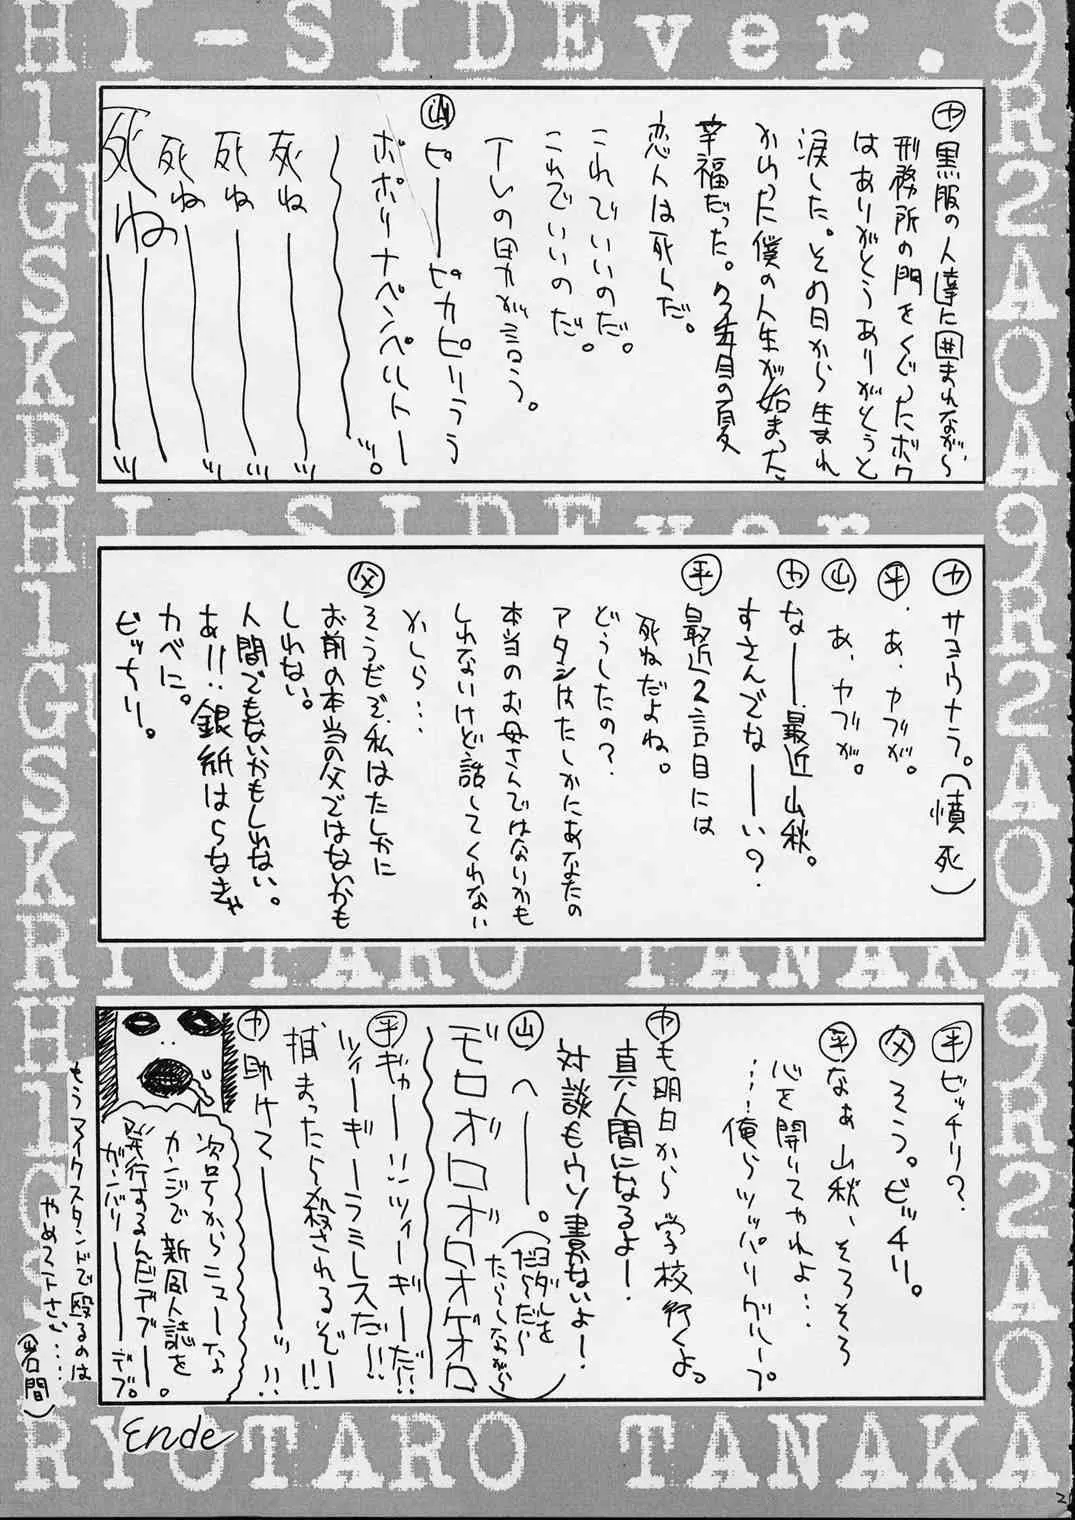 HI-SIDEver.
ヤ 黒服の人達に囲まれながら、
刑務所の門をくぐったボク
はありがとうありがとうと
涙した。その日から生まれ
かわった僕の人生が始まった
幸福だった。
恋人は死んだ。
これでいいのだ。
これでいいのだ。
山 ピーーピカピリうう
ポポリナペンペルトー
〜〜〜ッ。
死ね〜〜ッ
死ね〜〜ッ
死ね〜〜ッ
死ね〜〜ッ
カ サヨウナラ。(憤死)
平 あ、ヤブが。
山 あ、ヤブが。
カ なーー最近山秋。
すさんでなーーい？
平 最近2言目には
死ねだよね。
どうしたの？
アタシはたしかにあなたの
本当のお母さんではないかも
しれないけど話してくれない
かしら…
父 そうだぞ、私はたしかに
お前の本当の父ではないかも
しれない。
人間でもないかもしれない。
あ!!銀紙はらなきゃ
カベに。
ビッちり。
平 ビッチリ？
父 そう。ビッチリ。
平 なぁ山秋、そろそろ
心を開いてやれよ…
……俺らツッパリグループ。
ヤ も明日から学校行くよ。
真人間になるよー！
対談もウソ書かないよー！
山 へーーー。(ヨダレを
だ〜だ〜
たら〜しながら)
モロオ゛ロオ゛ロオゲオロ
平 ギャー!!ツィーギーだ!!
ツィーギーラミレスだ!!
捕まったら殺されるぞ!!!
ヤ 助けてーーーッ!!
次号からニューな
カンジで新同人誌を
発行するんだデブー。
ガンバリーーデブ。
もうマイクスタンドで殴るのは
やめて下さい……
(岩間)
Ende
RYOTARO TANAKA